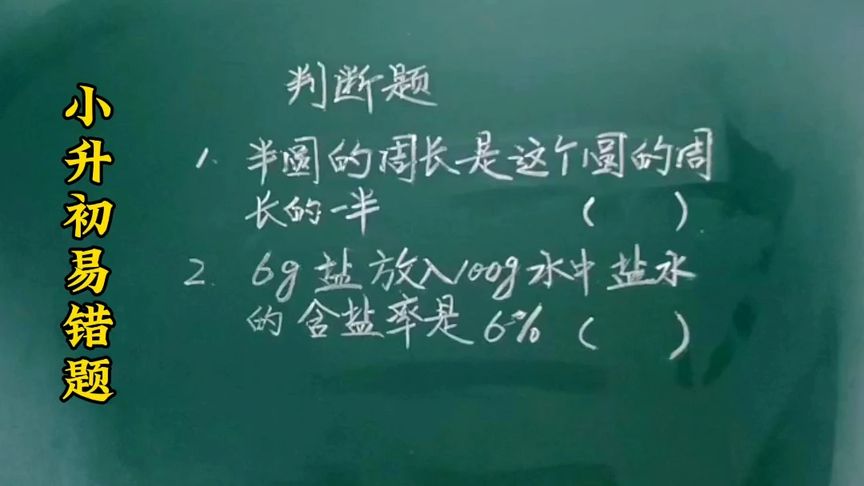 小升初易错题
判断题
1. 半圆的周长是这个圆的周
长的一半 ( )
2. 6g盐放入100g水中盐水
的含盐率是6% ( )